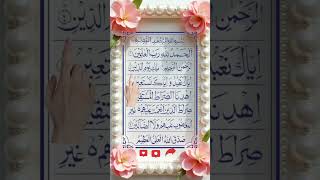 الحمد لله رب العالمين
الرحمن الرحيم ملك يوم الدين
إياك نعبد وإياك نستعين
اهدنا الصراط المستقيم
صراط الذين أنعمت عليهم غير
المغضوب عليهم ولا الضالين
صدق الله العلي العظيم